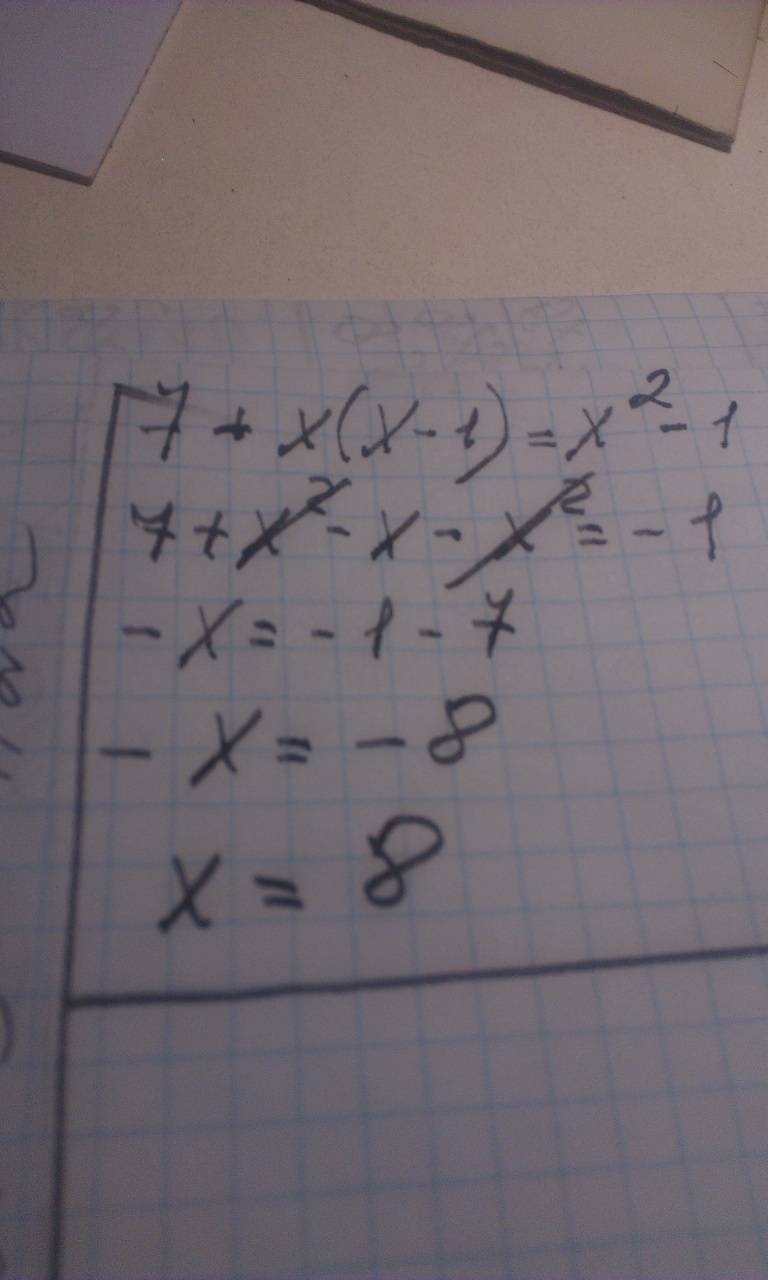 7 + x(x - 1) = x² - 1
7 + x² - x - x² = - 1
- x = - 1 - 7
- x = - 8
x = 8